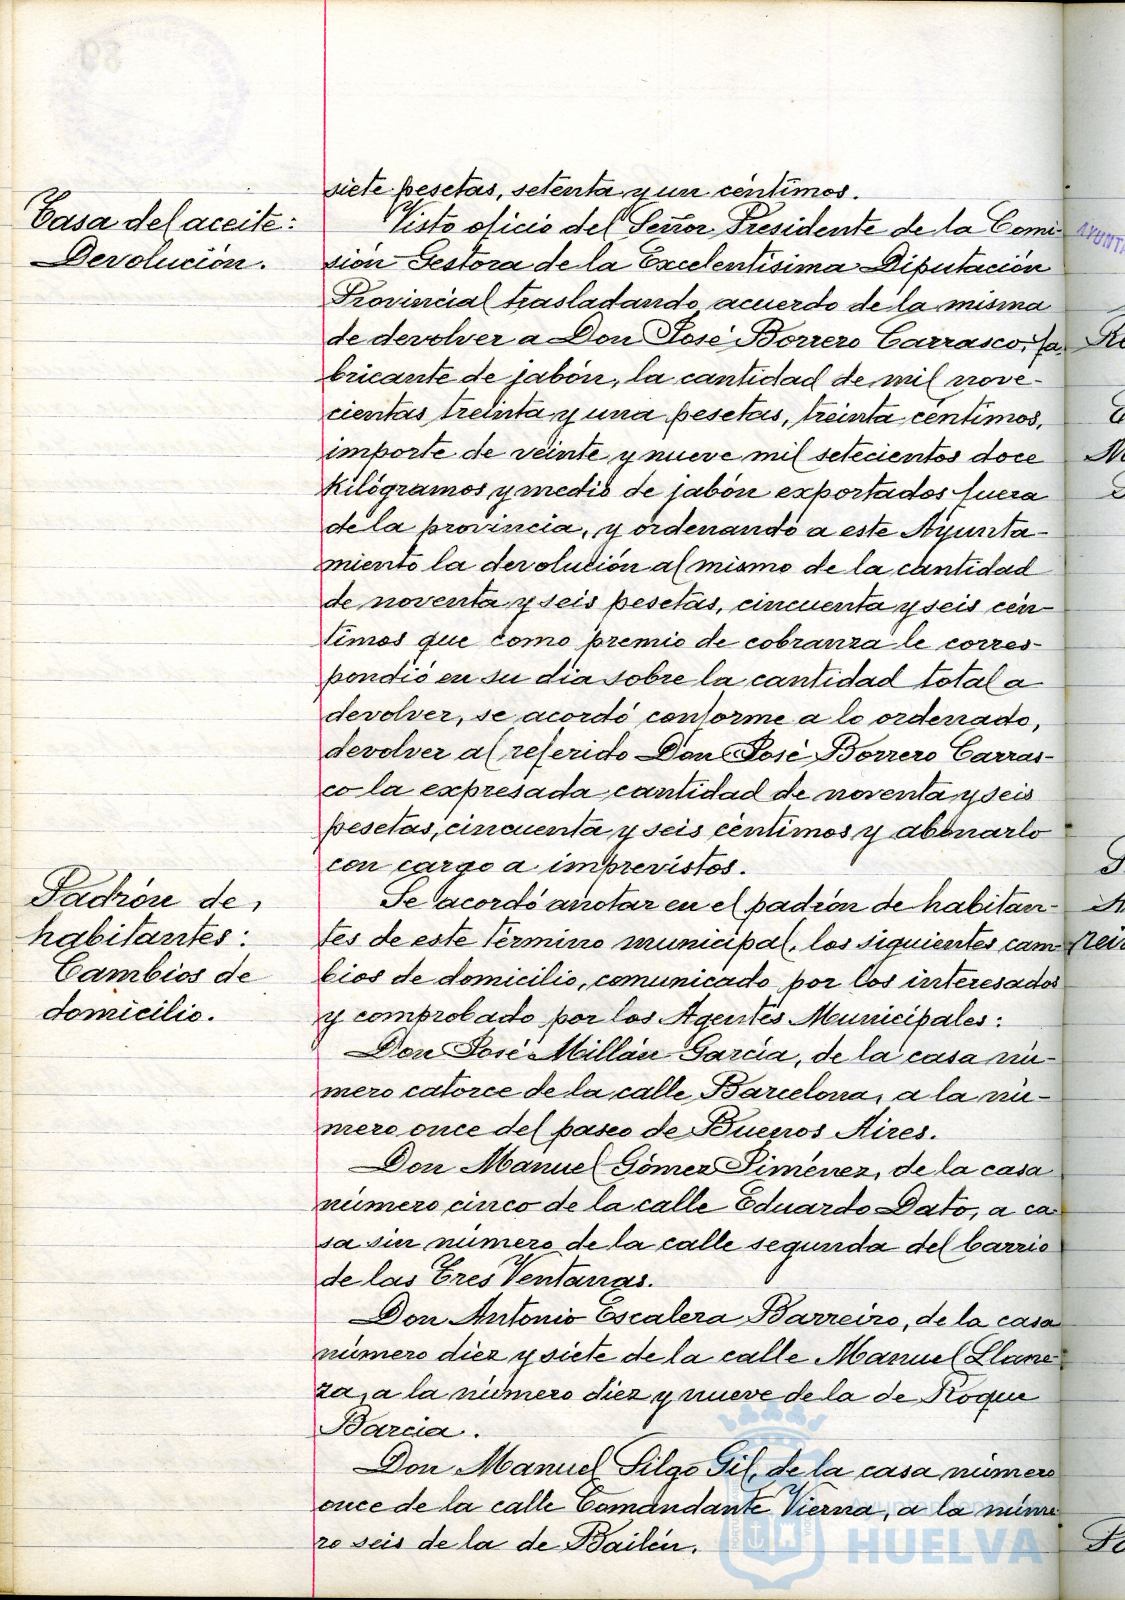 Tasa del aceite:
Devolución.
siete pesetas, setenta y un céntimos.
Visto oficio del Señor Presidente de la Comi-
sión Gestora de la Excelentísima Diputación
Provincial trasladando acuerdo de la misma
de devolver a Don José Borrero Carrasco, fa-
bricante de jabón, la cantidad de mil nove-
cientas treinta y una pesetas, treinta céntimos,
importe de veinte y nueve mil setecientos doce
kilógramos y medio de jabón exportados fuera
de la provincia, y ordenando a este Ayunta-
miento la devolución al mismo de la cantidad
de noventa y seis pesetas, cincuenta y seis cén-
timos que como premio de cobranza le corres-
pondió en su dia sobre la cantidad total a
devolver, se acordó conforme a lo ordenado,
devolver al referido Don José Borrero Carras-
co la expresada cantidad de noventa y seis
pesetas, cincuenta y seis céntimos y abonarlo
con cargo a imprevistos.
Padrón de
habitantes:
Cambios de
domicilio.
Se acordó anotar en el padrón de habitan-
tes de este término municipal, los siguientes cam-
bios de domicilio, comunicado por los interesados
y comprobado por los Agentes Municipales:
Don José Millán García, de la casa nú-
mero catorce de la calle Barcelona, a la nú-
mero once del paseo de Buenos Aires.
Don Manuel Gómez Jiménez, de la casa
número cinco de la calle Eduardo Dato, a ca-
sa sin número de la calle segunda del barrio
de las Tres Ventanas.
Don Antonio Escalera Barreiro, de la casa
número diez y siete de la calle Manuel Llane-
za, a la número diez y nueve de la de Roque
Barcia.
Don Manuel Silgo Gil, de la casa número
once de la calle Comandante Vierna, a la núme-
ro seis de la de Bailén.
HUELVA